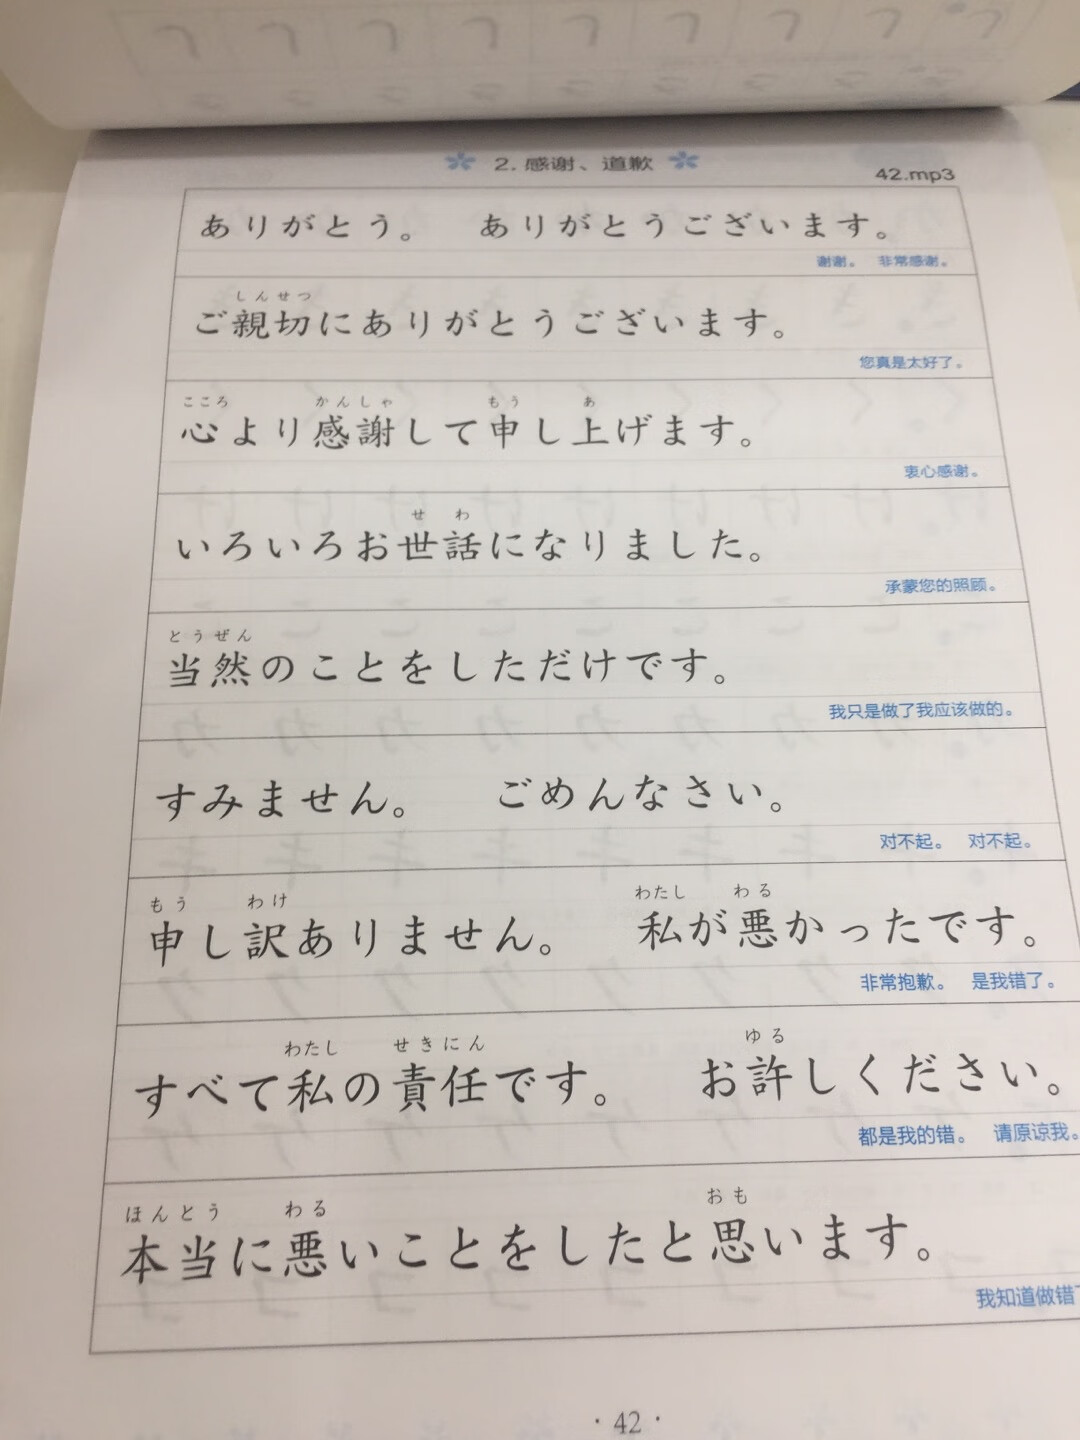 2. 感谢、道歉
42.mp3
ありがとう。 ありがとうございます。
谢谢。 非常感谢。
しんせつ
ご親切にありがとうございます。
您真是太好了。
こころ かんしゃ もう あ
心より感謝して申し上げます。
衷心感谢。
せ わ
いろいろお世話になりました。
承蒙您的照顾。
とうぜん
当然のことをしただけです。
我只是做了我应该做的。
すみません。 ごめんなさい。
对不起。 对不起。
もう わけ わたし わる
申し訳ありません。 私が悪かったです。
非常抱歉。 是我错了。
わたし せきにん ゆる
すべて私の責任です。 お許しください。
都是我的错。 请原谅我。
ほんとう わる おも
本当に悪いことをしたと思います。
我知道做错
· 42 ·